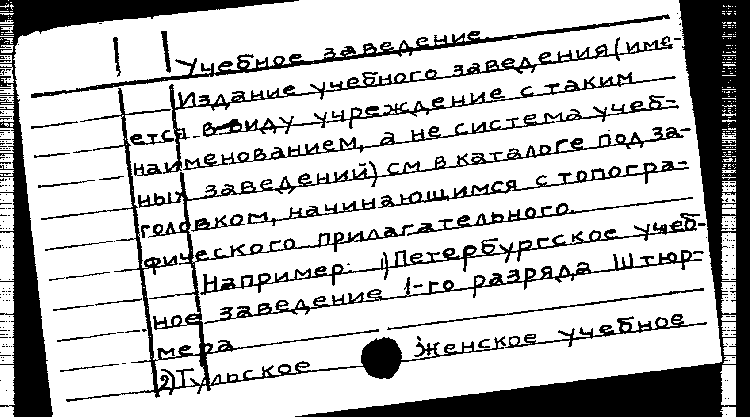 Учебное заведение.
Издание учебного заведения (име-
ется в виду учреждение с таким
наименованием, а не система учеб-
ных заведений) см в каталоге под за-
головком, начинающимся с топогра-
фического прилагательного.
Например: 1) Петербургское учеб-
ное заведение 1-го разряда Штюр-
мера
2) Тульское Женское учебное